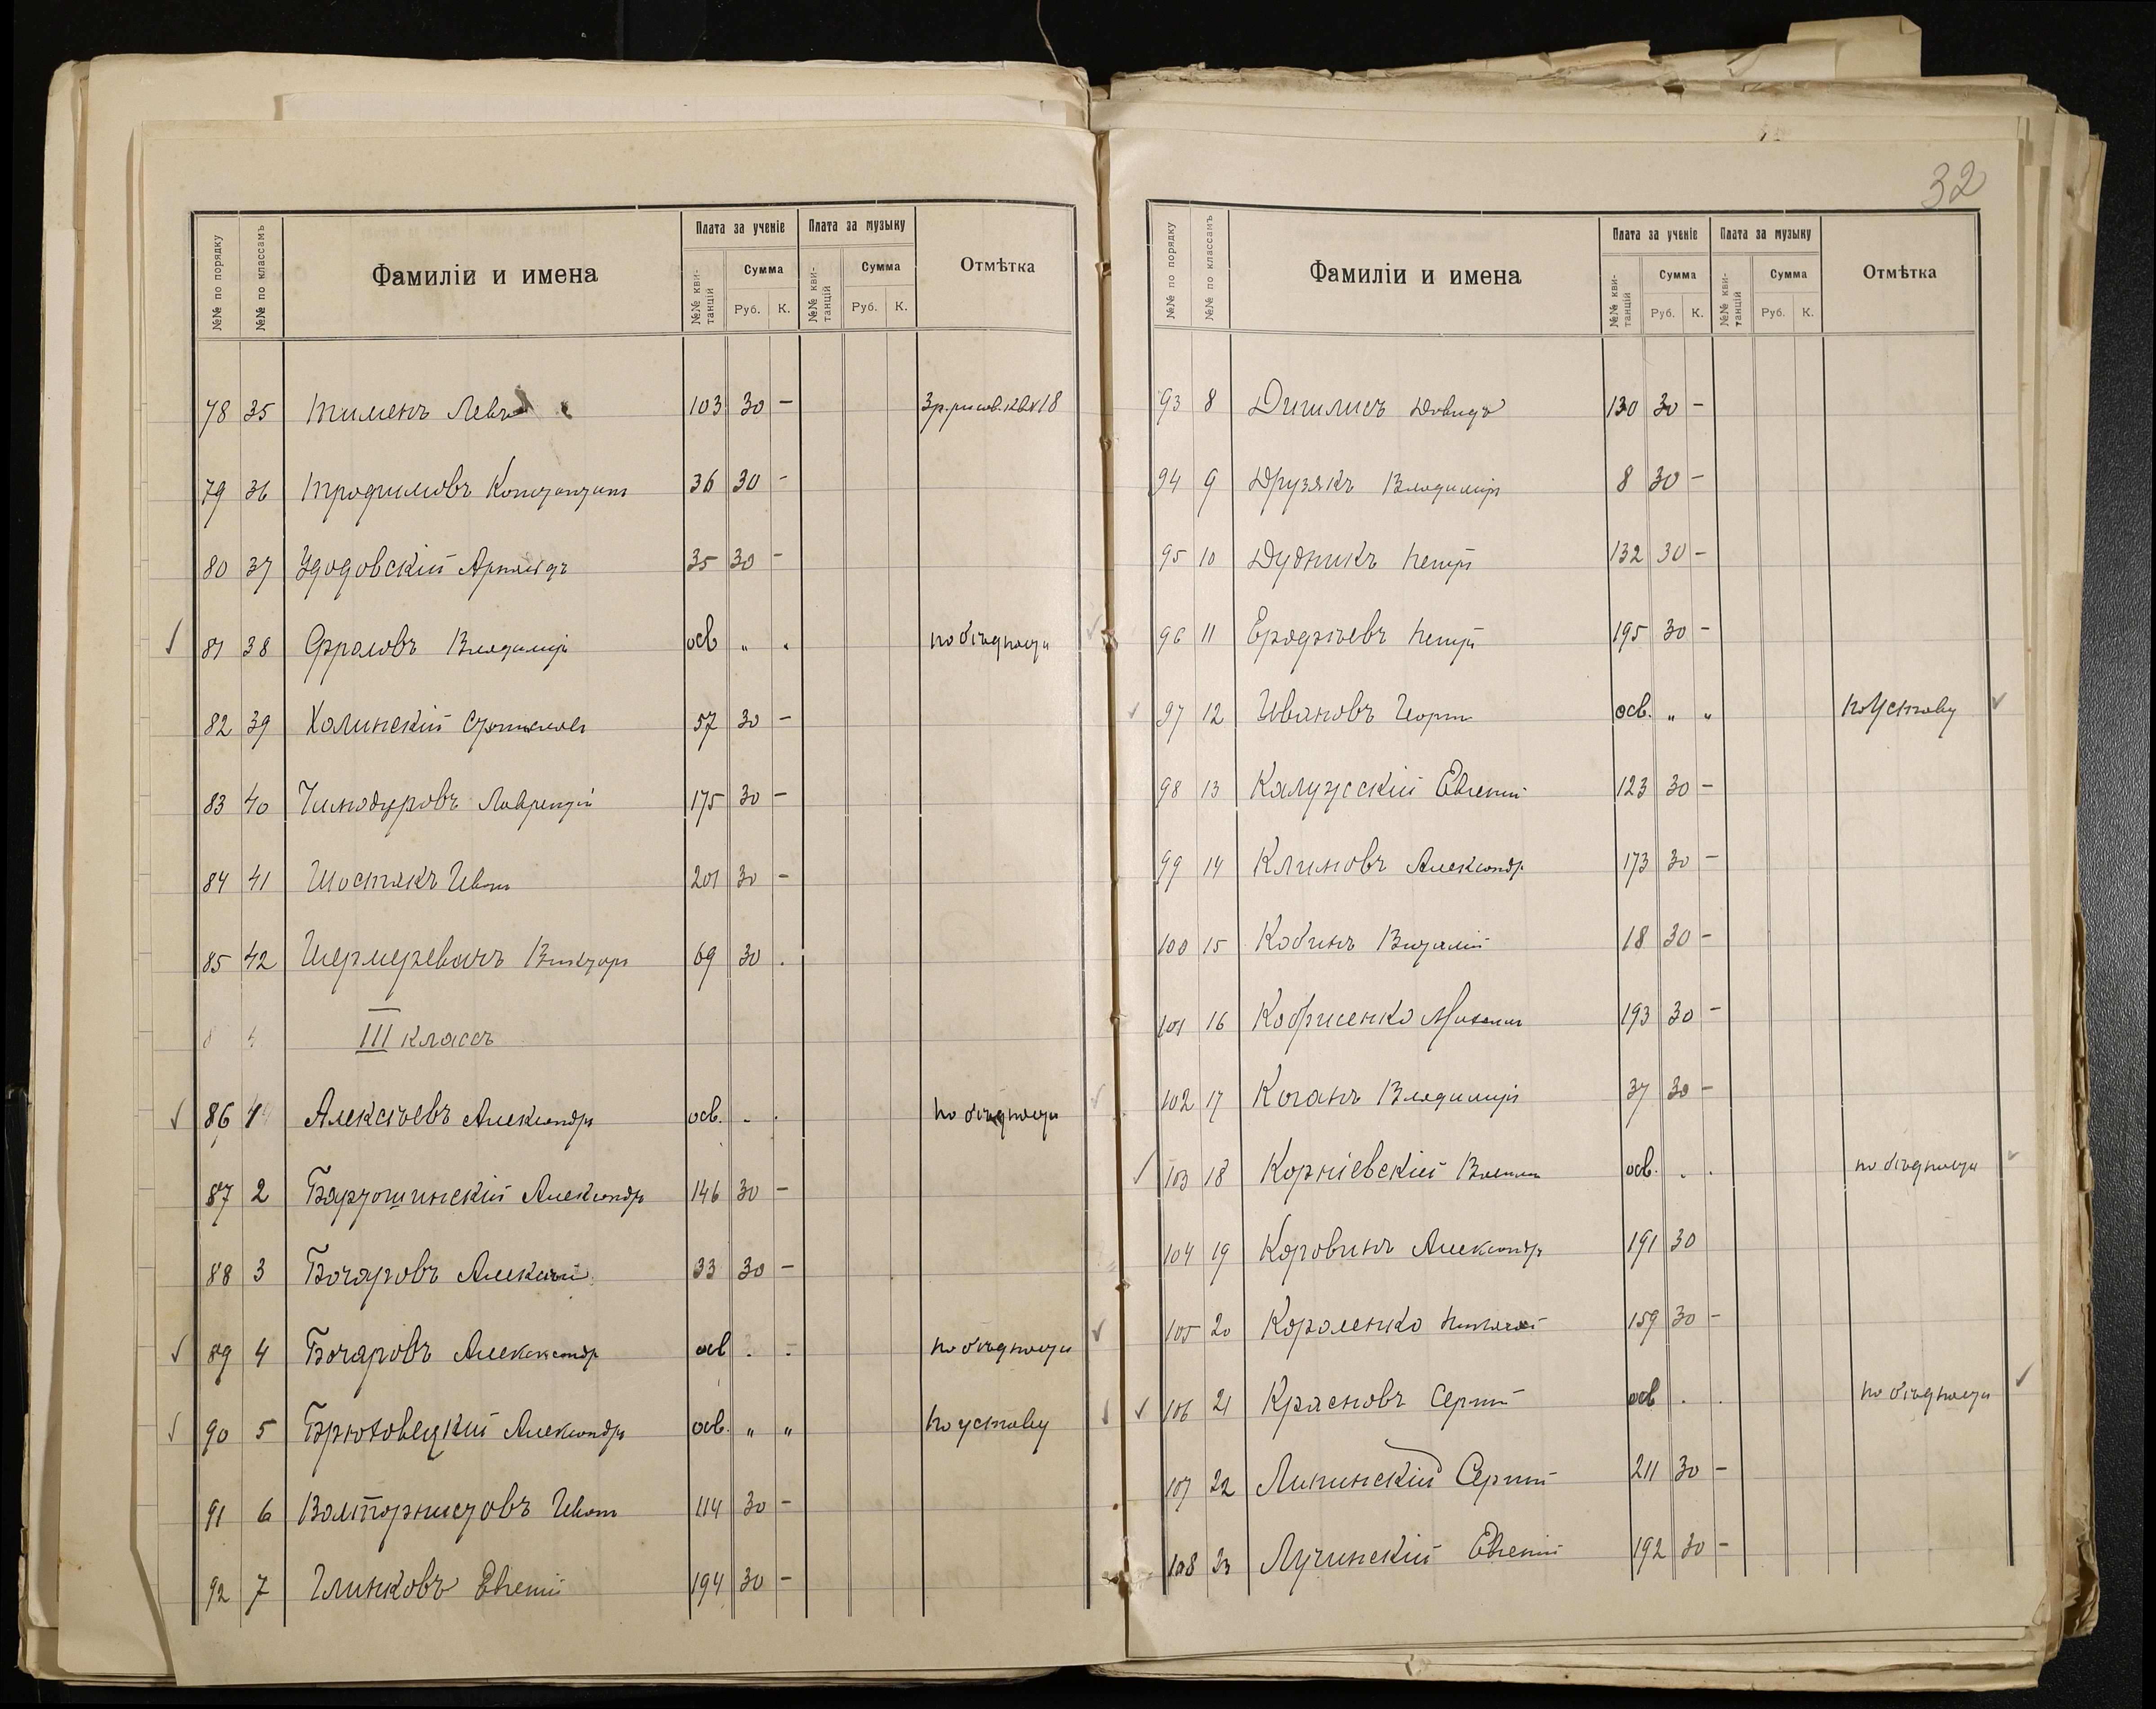 32
№№ по порядку №№ по классамъ Фамиліи и имена Плата за ученіе Плата за музыку Отмѣтка
№№ квитанцій Сумма №№ квитанцій Сумма
Руб. К. Руб. К.
78 35 Тименъ Левъ 103 30 —
79 36 Трофимовъ Константинъ 36 30 —
80 37 Удодовскій 35 30 —
81 38 Фроловъ Владиміръ осв „ „ по бѣдности
82 39 Холинскій Станиславъ 57 30 —
83 40 Чинодуровъ Лаврентій 175 30 —
84 41 Шостакъ Иванъ 201 30 —
85 42 Викторъ 69 30 .
III классъ
86 1 Алексѣевъ Александръ осв. . . по бѣдности
87 2 Бартошинскій Александръ 146 30 —
88 3 Бочаровъ Алексѣй 33 30 —
89 4 Бочаровъ Александръ осв . . по бѣдности
90 5 Брюховецкій Александръ осв. „ „ по уставу
91 6 Волторнистовъ Иванъ 114 30 —
92 7 Глинковъ Евгеній 194 30 —
№№ по порядку №№ по классамъ Фамиліи и имена Плата за ученіе Плата за музыку Отмѣтка
№№ квитанцій Сумма №№ квитанцій Сумма
Руб. К. Руб. К.
93 8 Давидъ 130 30 —
94 9 Друзякъ Владиміръ 8 30 —
95 10 Дудникъ Петръ 132 30 —
96 11 Петръ 195 30 —
97 12 Ивановъ осв. „ „ по Уставу
98 13 Калужскій Евгеній 123 30 —
99 14 Климовъ Александръ 173 30 —
100 15 Кобинъ Виталій 18 30 —
101 16 Михаилъ 193 30 —
102 17 Коганъ Владиміръ 37 30 —
103 18 Корніевскій осв. . . по бѣдности
104 19 Коровинъ Александръ 191 30
105 20 Короленко Николай 159 30 —
106 21 Красновъ Сергѣй осв . . по бѣдности
107 22 Липинскій Сергѣй 211 30 —
108 23 Лучинскій Евгеній 192 30 —